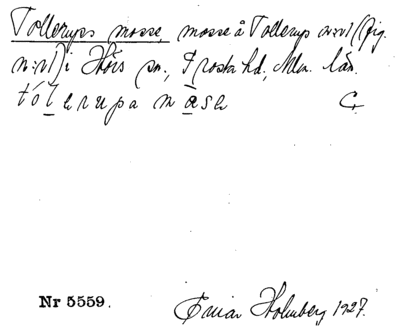 Tollerups mosse, mosse å Tollerup nr:vl (fig.
nr:vl) i Hörs sn., Frosta hd., Mlm. län.
tólerupa måse C.
Nr 5559. Einar Holmberg 1927.